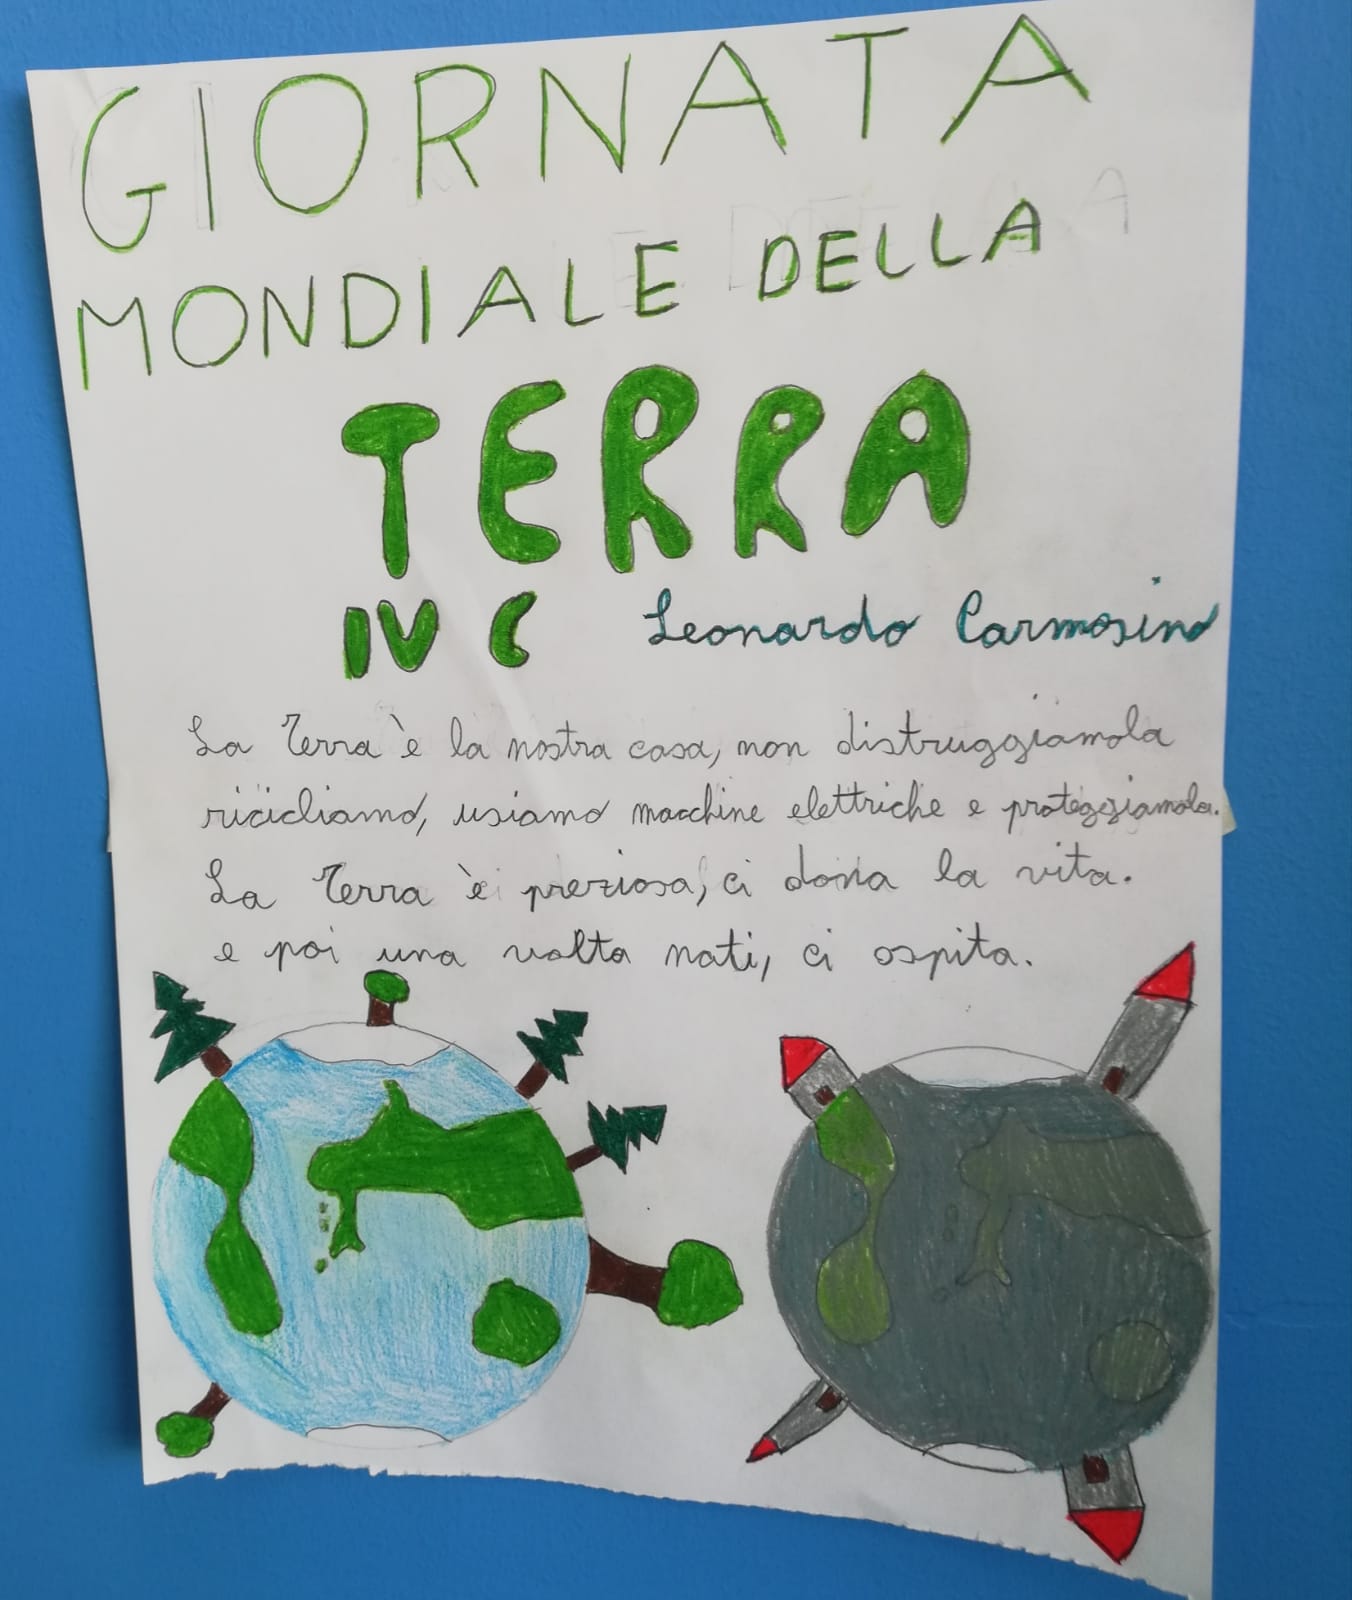 GIORNATA
MONDIALE DELLA
TERRA
IV C Leonardo Carmosino
La Terra è la nostra casa, non distruggiamola
ricicliamo, usiamo macchine elettriche e proteggiamola.
La Terra è preziosa, ci dona la vita.
e poi una volta nati, ci ospita.